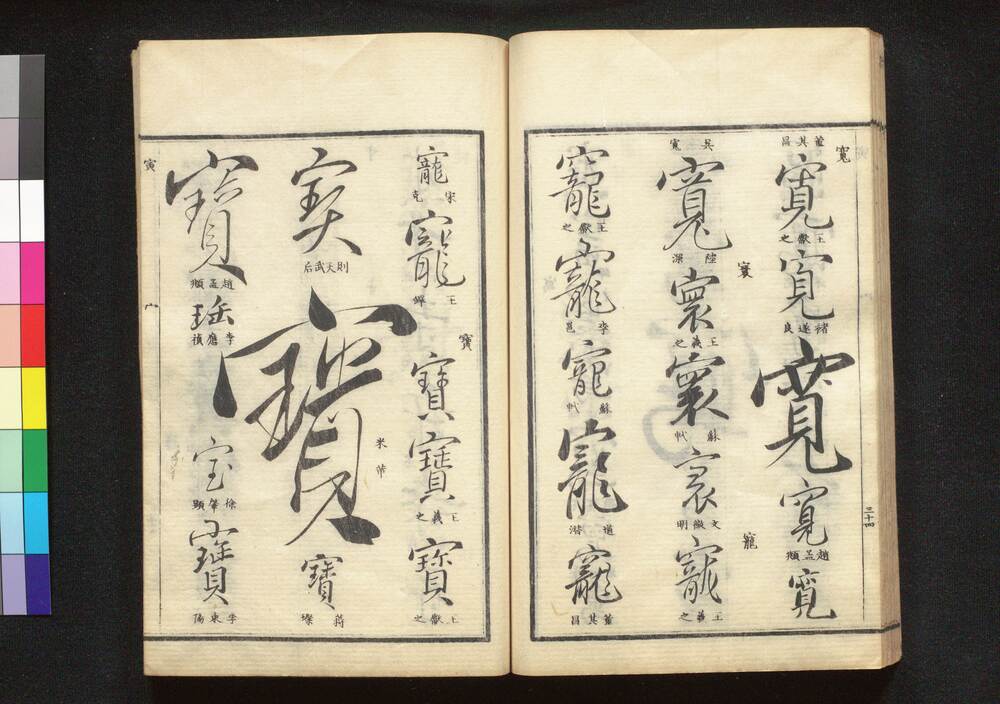 寬
董其昌
寬
王獻之
寬
褚遂良
寬
寬
趙孟頫
寬
三十四
吳寬
寬
陸深
寰
寰
王羲之
寰
蘇軾
寰
文徵明
寵
寵
王羲之
寵
王獻之
寵
李邕
寵
蘇軾
寵
道潛
寵
董其昌
寵
宋克
寵
王鐸
寶
寶
寶
王羲之
寶
王獻之
寶
則天武后
寶
米芾
寶
蔣燦
寶
趙孟頫
珤
李應禎
宝
寶
李東陽